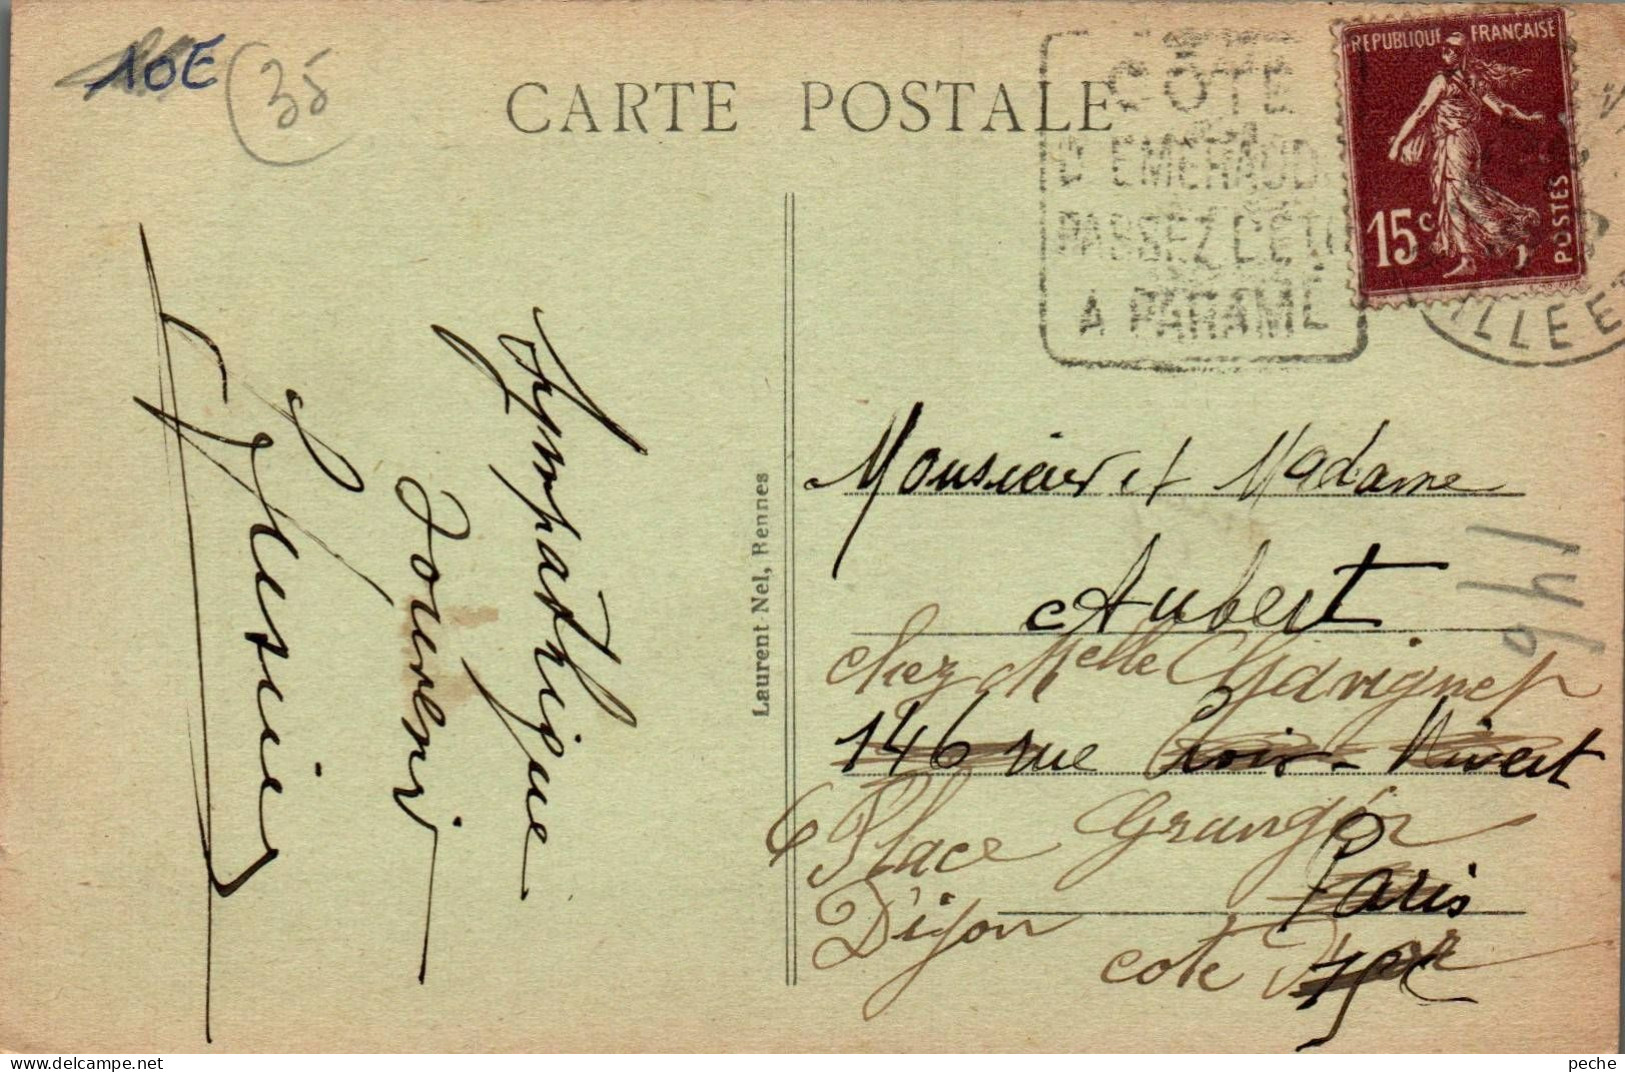 10E
35
CARTE POSTALE
CÔTE
D'EMERAUD
PASSEZ L'ETE
A PARAMÉ
REPUBLIQUE FRANÇAISE
15c
POSTES
ILLE ET
Sympathique
Souvenir
Laurent Nel, Rennes
Monsieur et Madame
Aubert
chez Melle Chavignet
146 rue Croix-Nivert
6 Place Grangier
Paris
Dijon
cote D'or
15e
146
peche